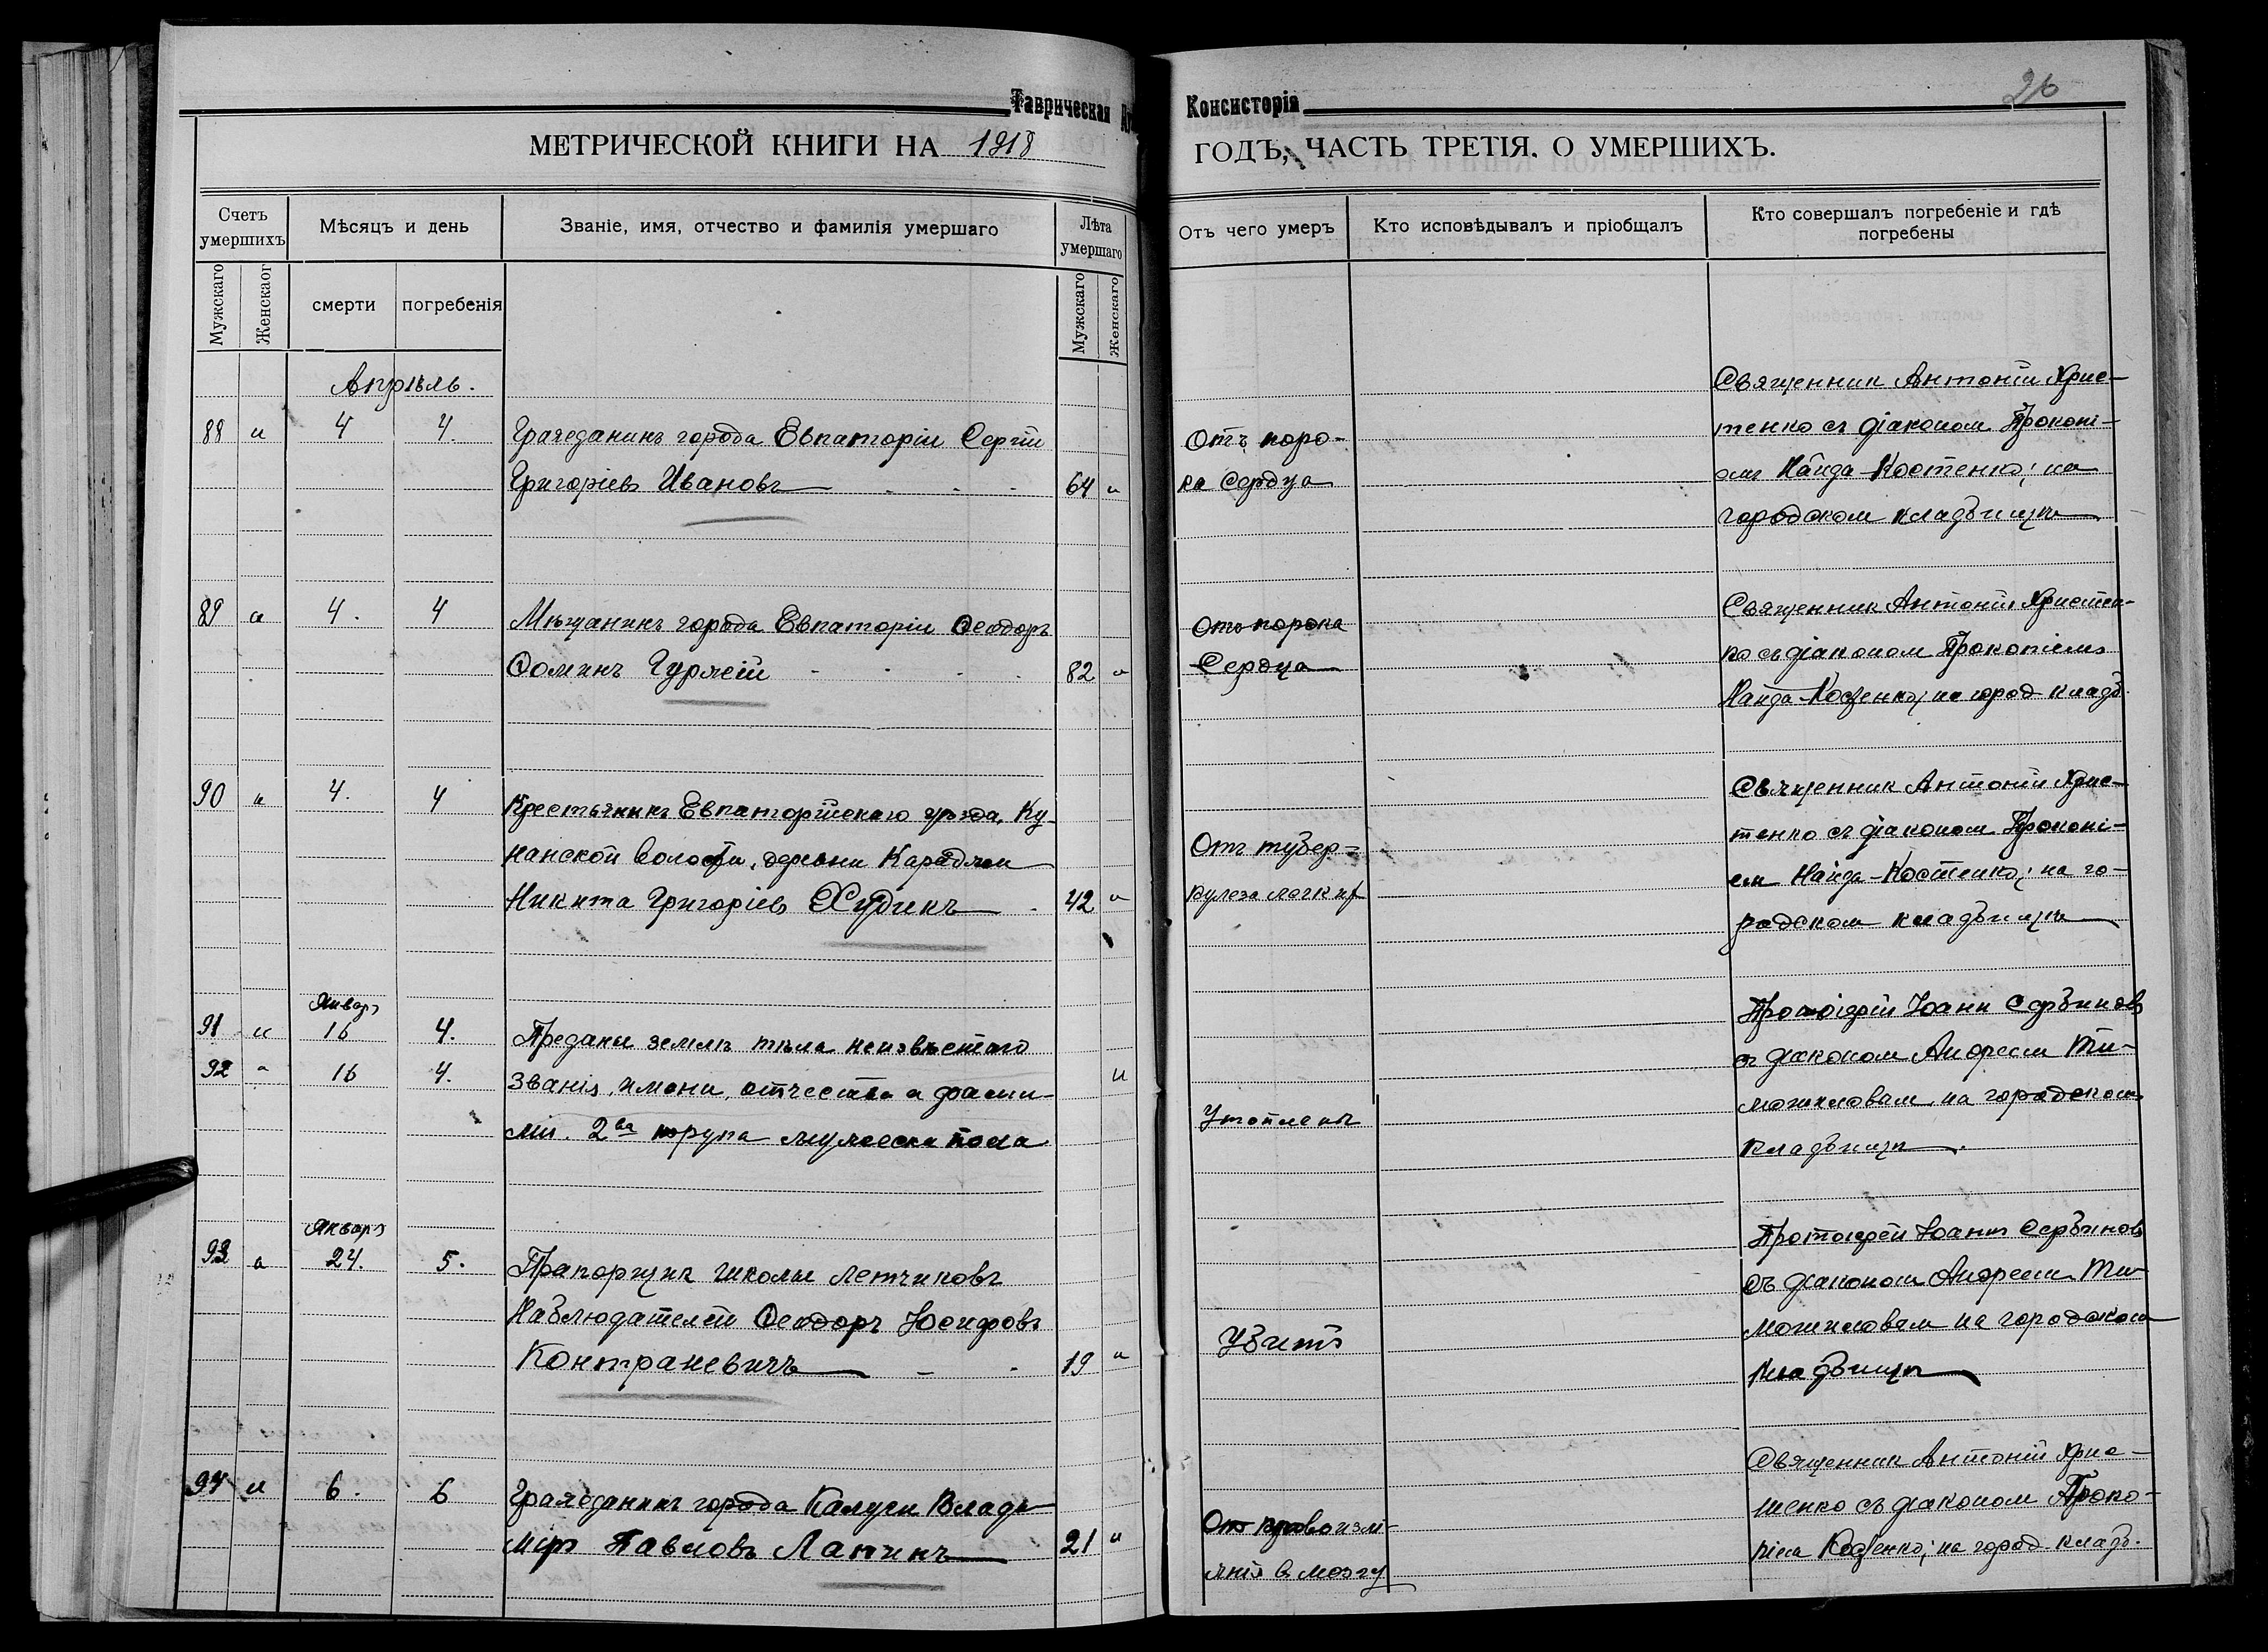 Таврическая
Консисторія
26
МЕТРИЧЕСКОЙ КНИГИ НА 1918
ГОДЪ, ЧАСТЬ ТРЕТІЯ. О УМЕРШИХЪ.
Счетъ умершихъ
Мѣсяцъ и день
Званіе, имя, отчество и фамилія умершаго
Лѣта умершаго
Отъ чего умеръ
Кто исповѣдывалъ и пріобщалъ
Кто совершалъ погребеніе и гдѣ
погребены
Мужскаго
Женскаог
смерти
погребенія
Мужскаго
Женскаго
Апрѣль.
88 и 4 4. Гражданинъ города Евпаторіи Сергій
Григоріевъ Ивановъ 64 и
Отъ поро-
ка сердца
Священник Антоній Хрис-
тенко съ діаконом Прокопі-
ем Найда-Костенко; на
городском кладбищѣ
89 и 4. 4 Мѣщанинъ города Евпаторіи Ѳеодоръ
Ѳоминъ Гуржій 82 и
Отъ порока
Сердца
Священник Антоній Христен-
ко съ діаконом Прокопіемъ
Найда-Костенко; на город кладб.
90 и 4. 4 Крестьянинъ Евпаторійскаго уѣзда, Ку-
нанской волости, деревни Караджи
Никита Григоріевъ Худинъ 42 и
Отъ тубер-
кулеза легких
Священник Антоній Хрис-
тенко съ діаконом Прокопі-
ем Найда-Костенко; на го-
родском кладбищѣ
Январ
91 и 16 4. Преданы землѣ тѣла неизвѣстнаго
92 16 4. званія, имени, отчества и фами-
ліи. 2ва трупа мужеска пола
и
Утоплены
Протоіерей Іоанн Сербинов
съ діаконом Андреем Ти-
мошиловым на городском
кладбищѣ.
Январ
93 и 24. 5. Прапорщик школы летчиковъ
Наблюдателей Ѳеодоръ Іосифовъ
Контраневичъ 19 и
Убитъ
Протоіерей Іоанн Сербинов
съ діаконом Андреем Ти-
мошиловым на городском
кладбищѣ
94 и 6. 6 Гражданинъ города Калуги Влади-
міръ Павловъ Лапинъ 21 и
От кровоизлі-
янія в мозгу
Священник Антоній Хрис-
тенко съ діаконом Проко-
піем Костенко; на город. кладб.